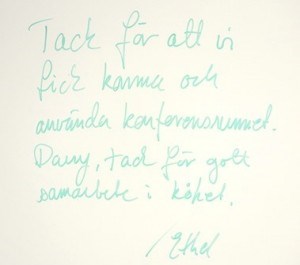 Tack för att vi
fick komma och
använda konferensrummet.
Dany, tack för gott
samarbete i köket.
/Ethel